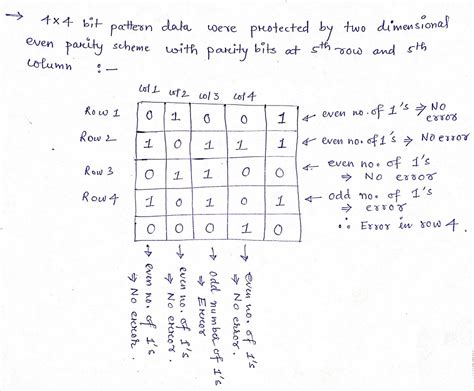 → 4×4 bit pattern data were protected by two dimensional
even parity scheme with parity bits at 5th row and 5th
column :-
col 1 col 2 col 3 col 4
Row 1 0 1 0 0 1 ← even no. of 1's ⇒ No
error
Row 2 1 0 1 1 1 ← even no. of 1's ⇒ No error
Row 3 0 1 1 0 0 ← even no. of 1's
⇒ No error
Row 4 1 0 1 0 1 ← odd no. of 1's
⇒ error
∴ Error in row 4.
0 0 0 1 0
→ even no. of 1's
⇒ No error.
→ even no. of 1's
⇒ No error.
→ odd number of 1's
⇒ Error
→ even no. of 1's
⇒ No error.